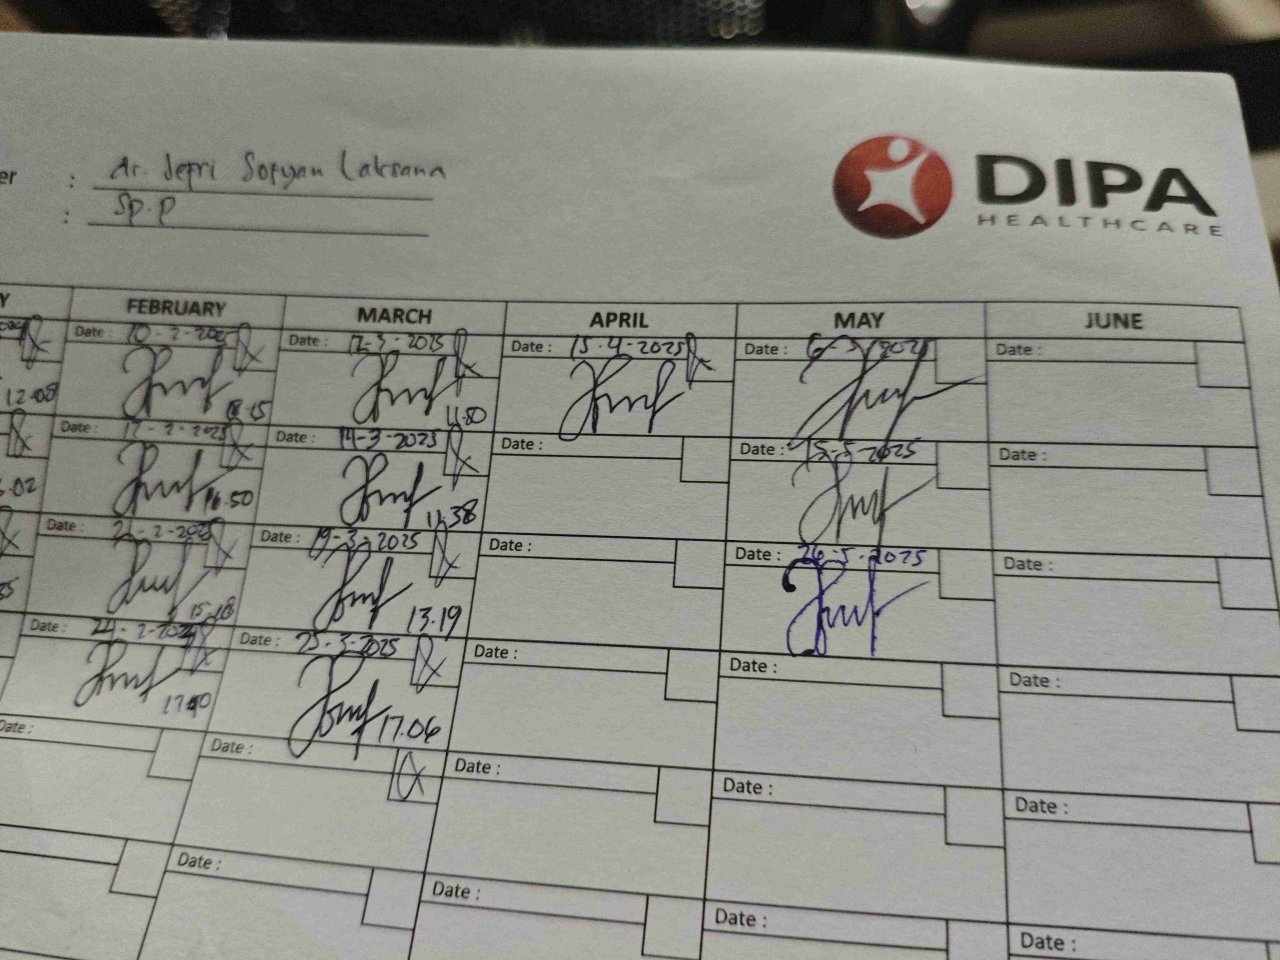 er : dr. Jefri Sofyan Laksana
: Sp.P
DIPA
HEALTHCARE
Y FEBRUARY MARCH APRIL MAY JUNE
Date : 10-2-2025 Date : 12-3-2025 Date : 15-4-2025 Date : 6-5-2025 Date :
12.08 18.15 11.50
Date : 17-2-2025 Date : 14-3-2025 Date : Date : 15-5-2025 Date :
.02 16.50 11.38
Date : 21-2-2025 Date : 19-3-2025 Date : Date : 26-5-2025 Date :
15.18 13.19
Date : 24-2-2025 Date : 25-3-2025 Date : Date : Date :
17.06
Date : Date : Date : Date : Date :
Date : Date : Date : Date :